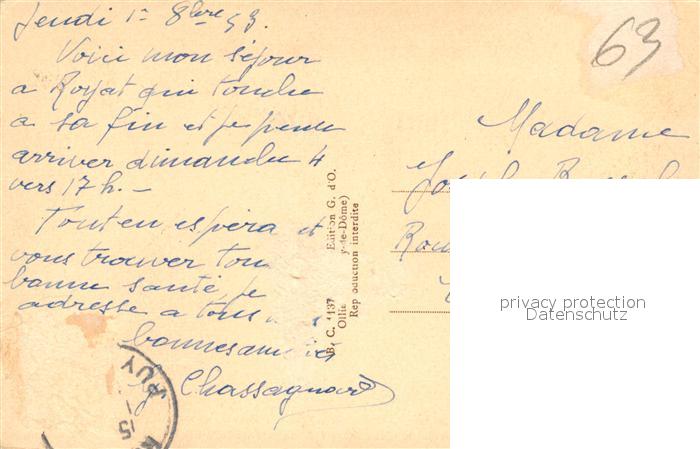 Jeudi 1er 8bre 53.
Voici mon séjour
a Royat qui touche
a sa fin et je pense
arriver dimanche 4
vers 17 h. -
Tout en espéra et
vous trouver tous
bonne santé, je
adresse a tous
bonnes amitiés
Chassagnard
63
Madame
Joseph
B. C. 1137 Edition G. d'O.
Ollie y-de-Dôme)
Rep oduction interdite
PUY
15
privacy protection
Datenschutz